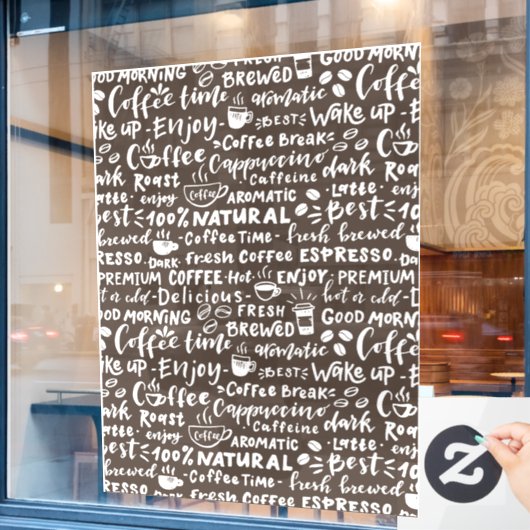 FRESH GOOD MORNING
GOOD MORNING BREWED Coffee
Coffee time aromatic
Wake up - Enjoy - BEST Wake up - E
Coffee Break
Coffee Cappuccino dark
dark Roast Caffeine
Latte - enjoy Coffee AROMATIC - Latte -
Best 100% NATURAL Best 10
brewed - Coffee Time - fresh brewed
PRESSO - DARK - fresh Coffee ESPRESSO -
PREMIUM COFFEE - Hot - ENJOY - PREMIUM
hot or cold - Delicious - hot or cold -
GOOD MORNING FRESH BREWED GOOD MORNING
Coffee time aromatic Coffee
Wake up - Enjoy - BEST Wake up - E
Coffee Break
Coffee Cappuccino dark
dark Roast Caffeine
enjoy Coffee AROMATIC - Latte -
Best 100% NATURAL Best 10
brewed - Coffee Time - fresh brewed
ESPRESSO - DARK - fresh Coffee ESPRESSO -
Z